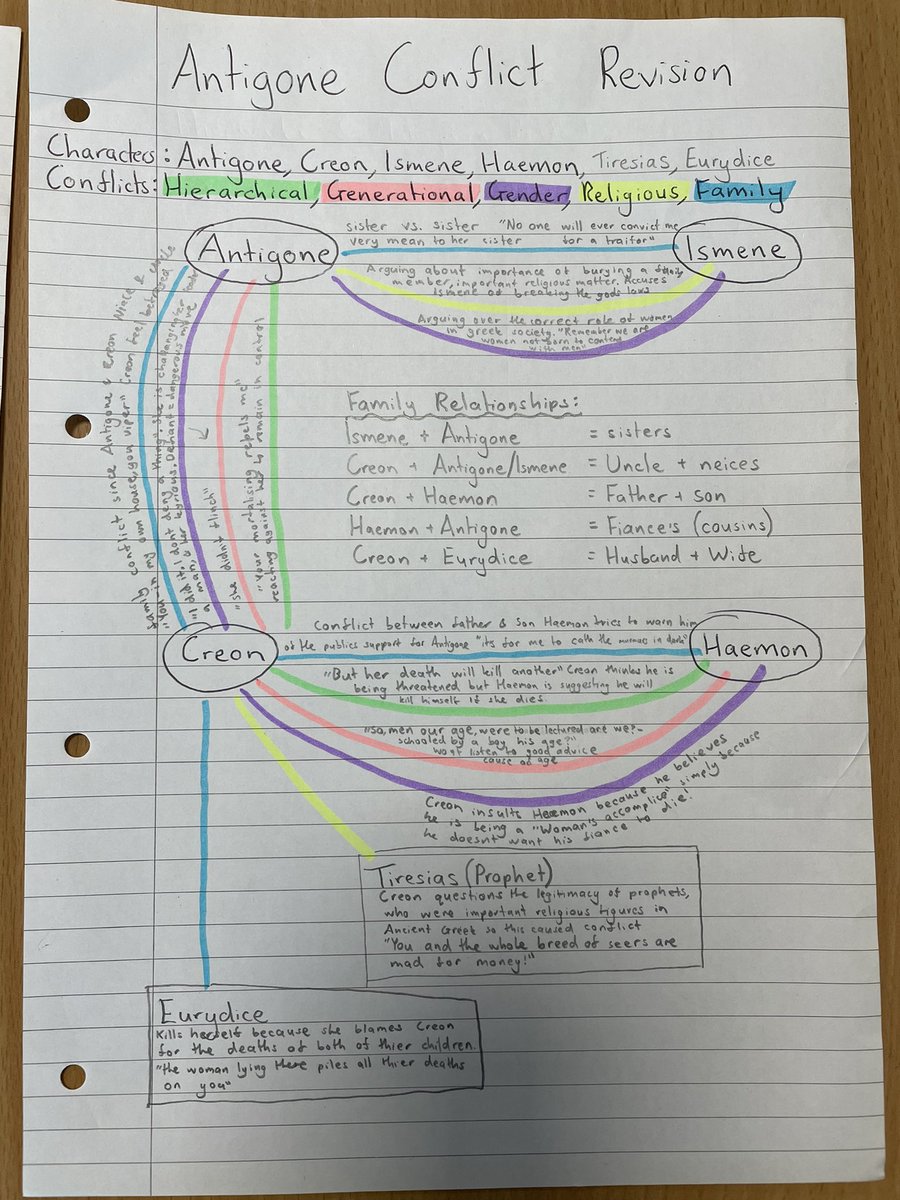 Antigone Conflict Revision
Characters: Antigone, Creon, Ismene, Haemon, Tiresias, Eurydice
Conflicts: Hierarchical, Generational, Gender, Religious, Family
Antigone
sister vs. sister "No one will ever convict me
very mean to her sister for a traitor"
Ismene
Arguing about importance of burying a family
member, important religious matter. Accuses
Ismene of breaking the gods laws
Arguing over the correct role of women
in greek society. "Remember we are
women not born to contend
with men"
family conflict since Antigone & Creon Niece & uncle
"You-in my own house, you viper" Creon feel betrayed
"I did it. I dont deny a thing" she is challanging
a man, & her Defiant = dangerous move
"she didnt flinch"
"Your moralising repels me"
reacting against her to remain in control
Family Relationships:
Ismene + Antigone = sisters
Creon + Antigone/Ismene = Uncle + neices
Creon + Haemon = Father + son
Haemon + Antigone = Fiance's (cousins)
Creon + Eurydice = Husband + Wife
Creon
Conflict between father & son Haemon tries to warn him
of the publics support for Antigone "its for me to cath the murmurs in dark"
Haemon
"But her death will kill another" Creon thinkes he is
being threatened but Haemon is suggesting he will
kill himself if she dies.
"so, men our age, were to be lectured are we?-
schooled by a boy his age?"
wont listen to good advice
cause of age
Creon insults Haemon because he believes
he is being a "Woman's accomplice" simply because
he doesnt want his fiance to die!
Tiresias (Prophet)
Creon questions the legitimacy of prophets,
who were important religious figures in
Ancient Greek so this caused conflict
"You and the whole breed of seers are
mad for money!"
Eurydice
Kills herself because she blames Creon
for the deaths of both of thier children.
"the woman lying there piles all thier deaths
on you"